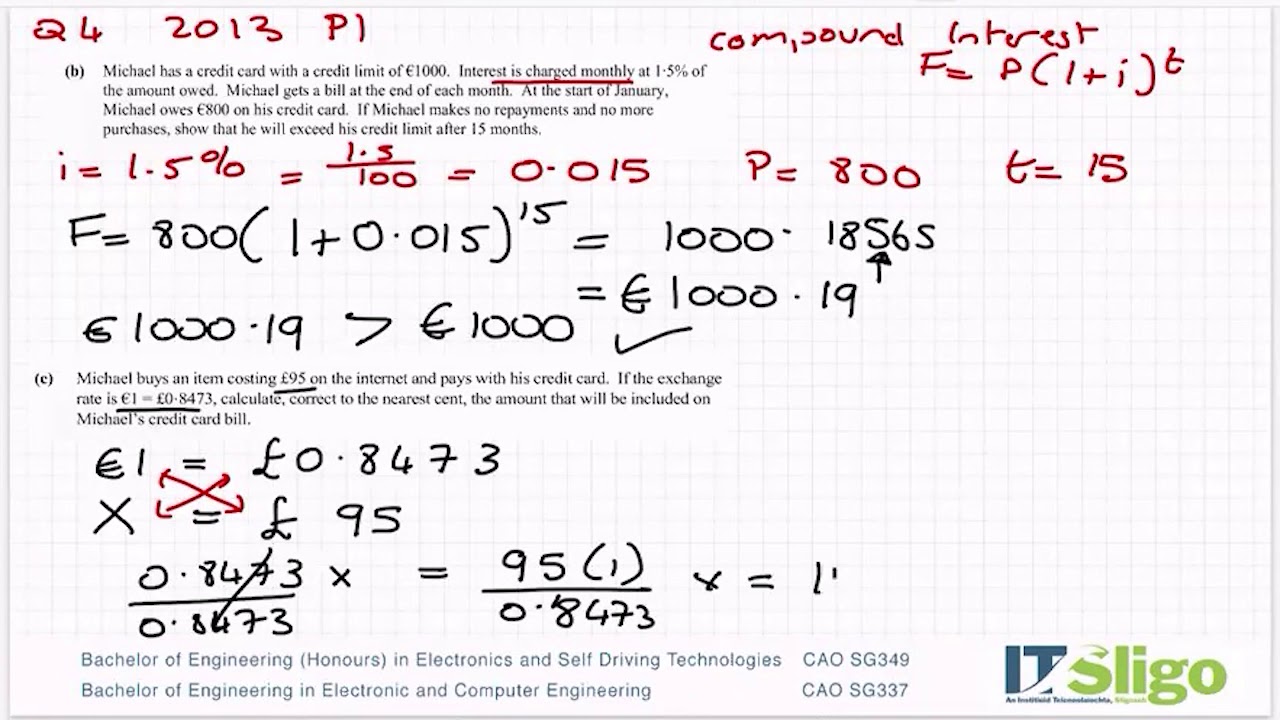 Q4 2013 P1
compound Interest
F = P(1+i)^t
(b) Michael has a credit card with a credit limit of €1000. Interest is charged monthly at 1·5% of
the amount owed. Michael gets a bill at the end of each month. At the start of January,
Michael owes €800 on his credit card. If Michael makes no repayments and no more
purchases, show that he will exceed his credit limit after 15 months.
i = 1.5% = 1.5/100 = 0.015 P = 800 t = 15
F = 800(1+0.015)^15 = 1000.18565
= €1000.19
€1000.19 > €1000 ✓
(c) Michael buys an item costing £95 on the internet and pays with his credit card. If the exchange
rate is €1 = £0·8473, calculate, correct to the nearest cent, the amount that will be included on
Michael's credit card bill.
€1 = £0.8473
X = £ 95
0.8473 x / 0.8473 = 95(1) / 0.8473 x = 1
Bachelor of Engineering (Honours) in Electronics and Self Driving Technologies CAO SG349
Bachelor of Engineering in Electronic and Computer Engineering CAO SG337
IT Sligo
An Institiúid Teicneolaíochta, Sligeach